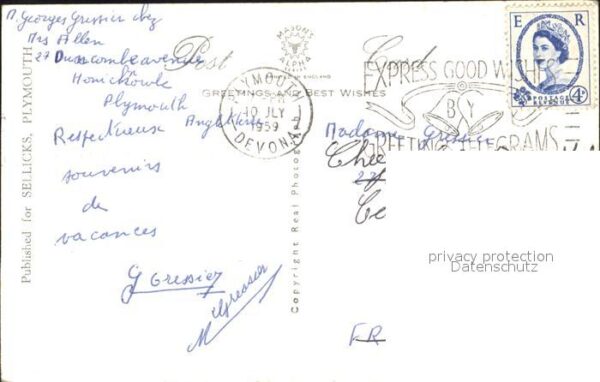 M. Georges Gressier chez
Mrs Allen
27 Dunscombe avenue
Honicknowle
Plymouth
Angleterre
Respectueux
souvenirs
de
vacances
G Gressier
M Gressier
Published for SELLICKS, PLYMOUTH
Post Card
MAJOR'S
ALPHA
ENGLAND
GREETINGS AND BEST WISHES
PLYMOUTH
10 JLY
1959
DEVON
EXPRESS GOOD WISHES
BY
GREETINGS TELEGRAMS
E R
POSTAGE REVENUE
4D
Copyright Real Photograph
Madame Gressier
Chee
27
Ce
FR
privacy protection
Datenschutz